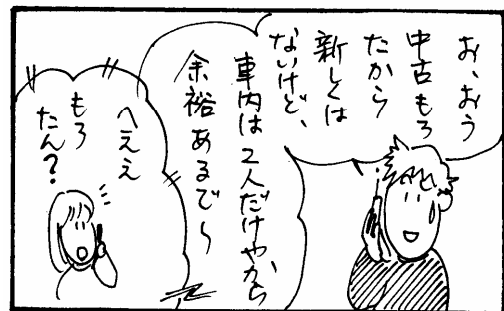 お、おう
中古もろ
たから
新しくは
ないけど、
車内は2人だけやから
余裕あるで〜
へええ
もろ
たん?